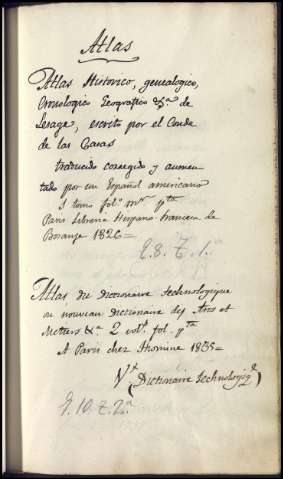 Atlas
Atlas Historico, genealogico,
Cronologico Geografico &ª de
Lesage, escrito por el Conde
de las Casas
traducido corregido y aumen-
tado por un Español americano
1 tomo fol. mʳ. pᵗᵃ
Paris Libreria Hispano-francesa de
Bosange 1826=
E. 8. T. 1.ª
Atlas du Dictionaire technologique
ou nouveau dictionaire des Arts et
Metiers &ª 2 volˢ. fol. pᵗᵃ
A Paris chez Thomine 1835=
Vᵗ (Dictionaire technologiqᵉ)
E. 10. T. 2.ª